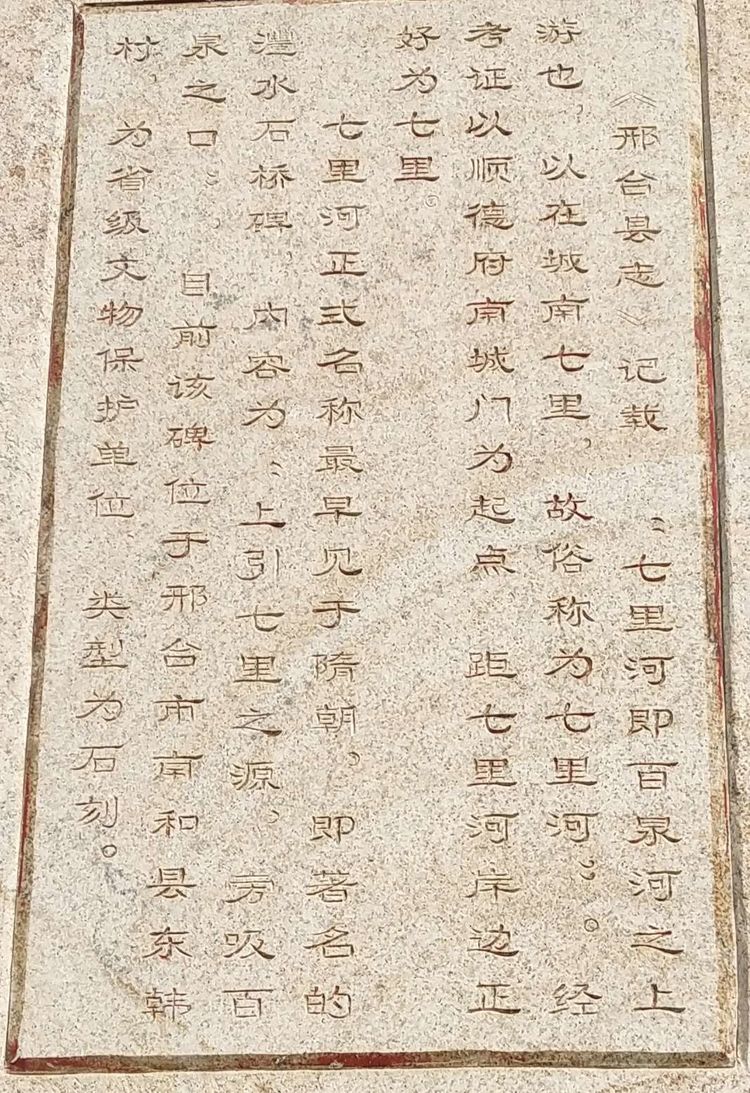 《邢台县志》记载：“七里河即百泉河之上
游也，以在城南七里，故俗称为七里河”。经
考证以顺德府南城门为起点 距七里河岸边正
好为七里。
七里河正式名称最早见于隋朝，即著名的
澧水石桥碑，内容为：“上引七里之源，旁吸百
泉之口”。目前该碑位于邢台市南和县东韩
村，为省级文物保护单位 类型为石刻。